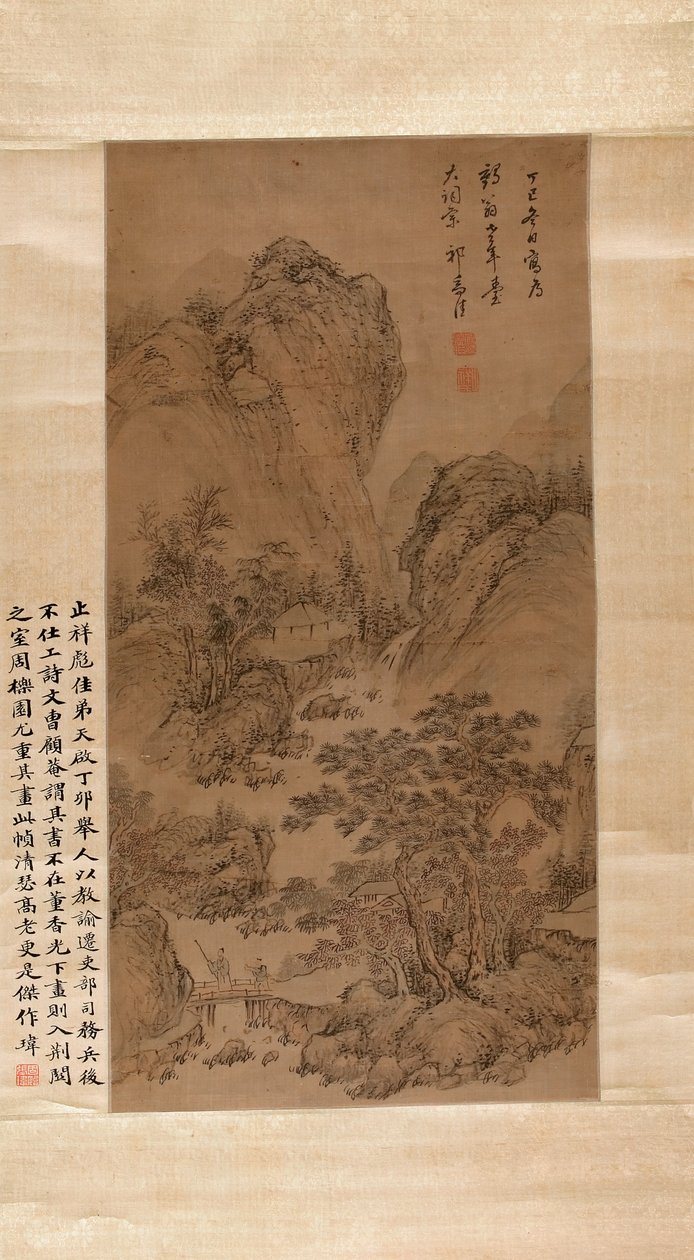 丁巳冬日寫為
翁老年臺
大詞宗 祁豸佳
止祥彪佳弟天啟丁卯舉人以教諭遷吏部司務兵後
不仕工詩文曹顧菴謂其書不在董香光下畫則入荆關
之室周櫟園尤重其畫此幀清瑟高老更是傑作 瑋